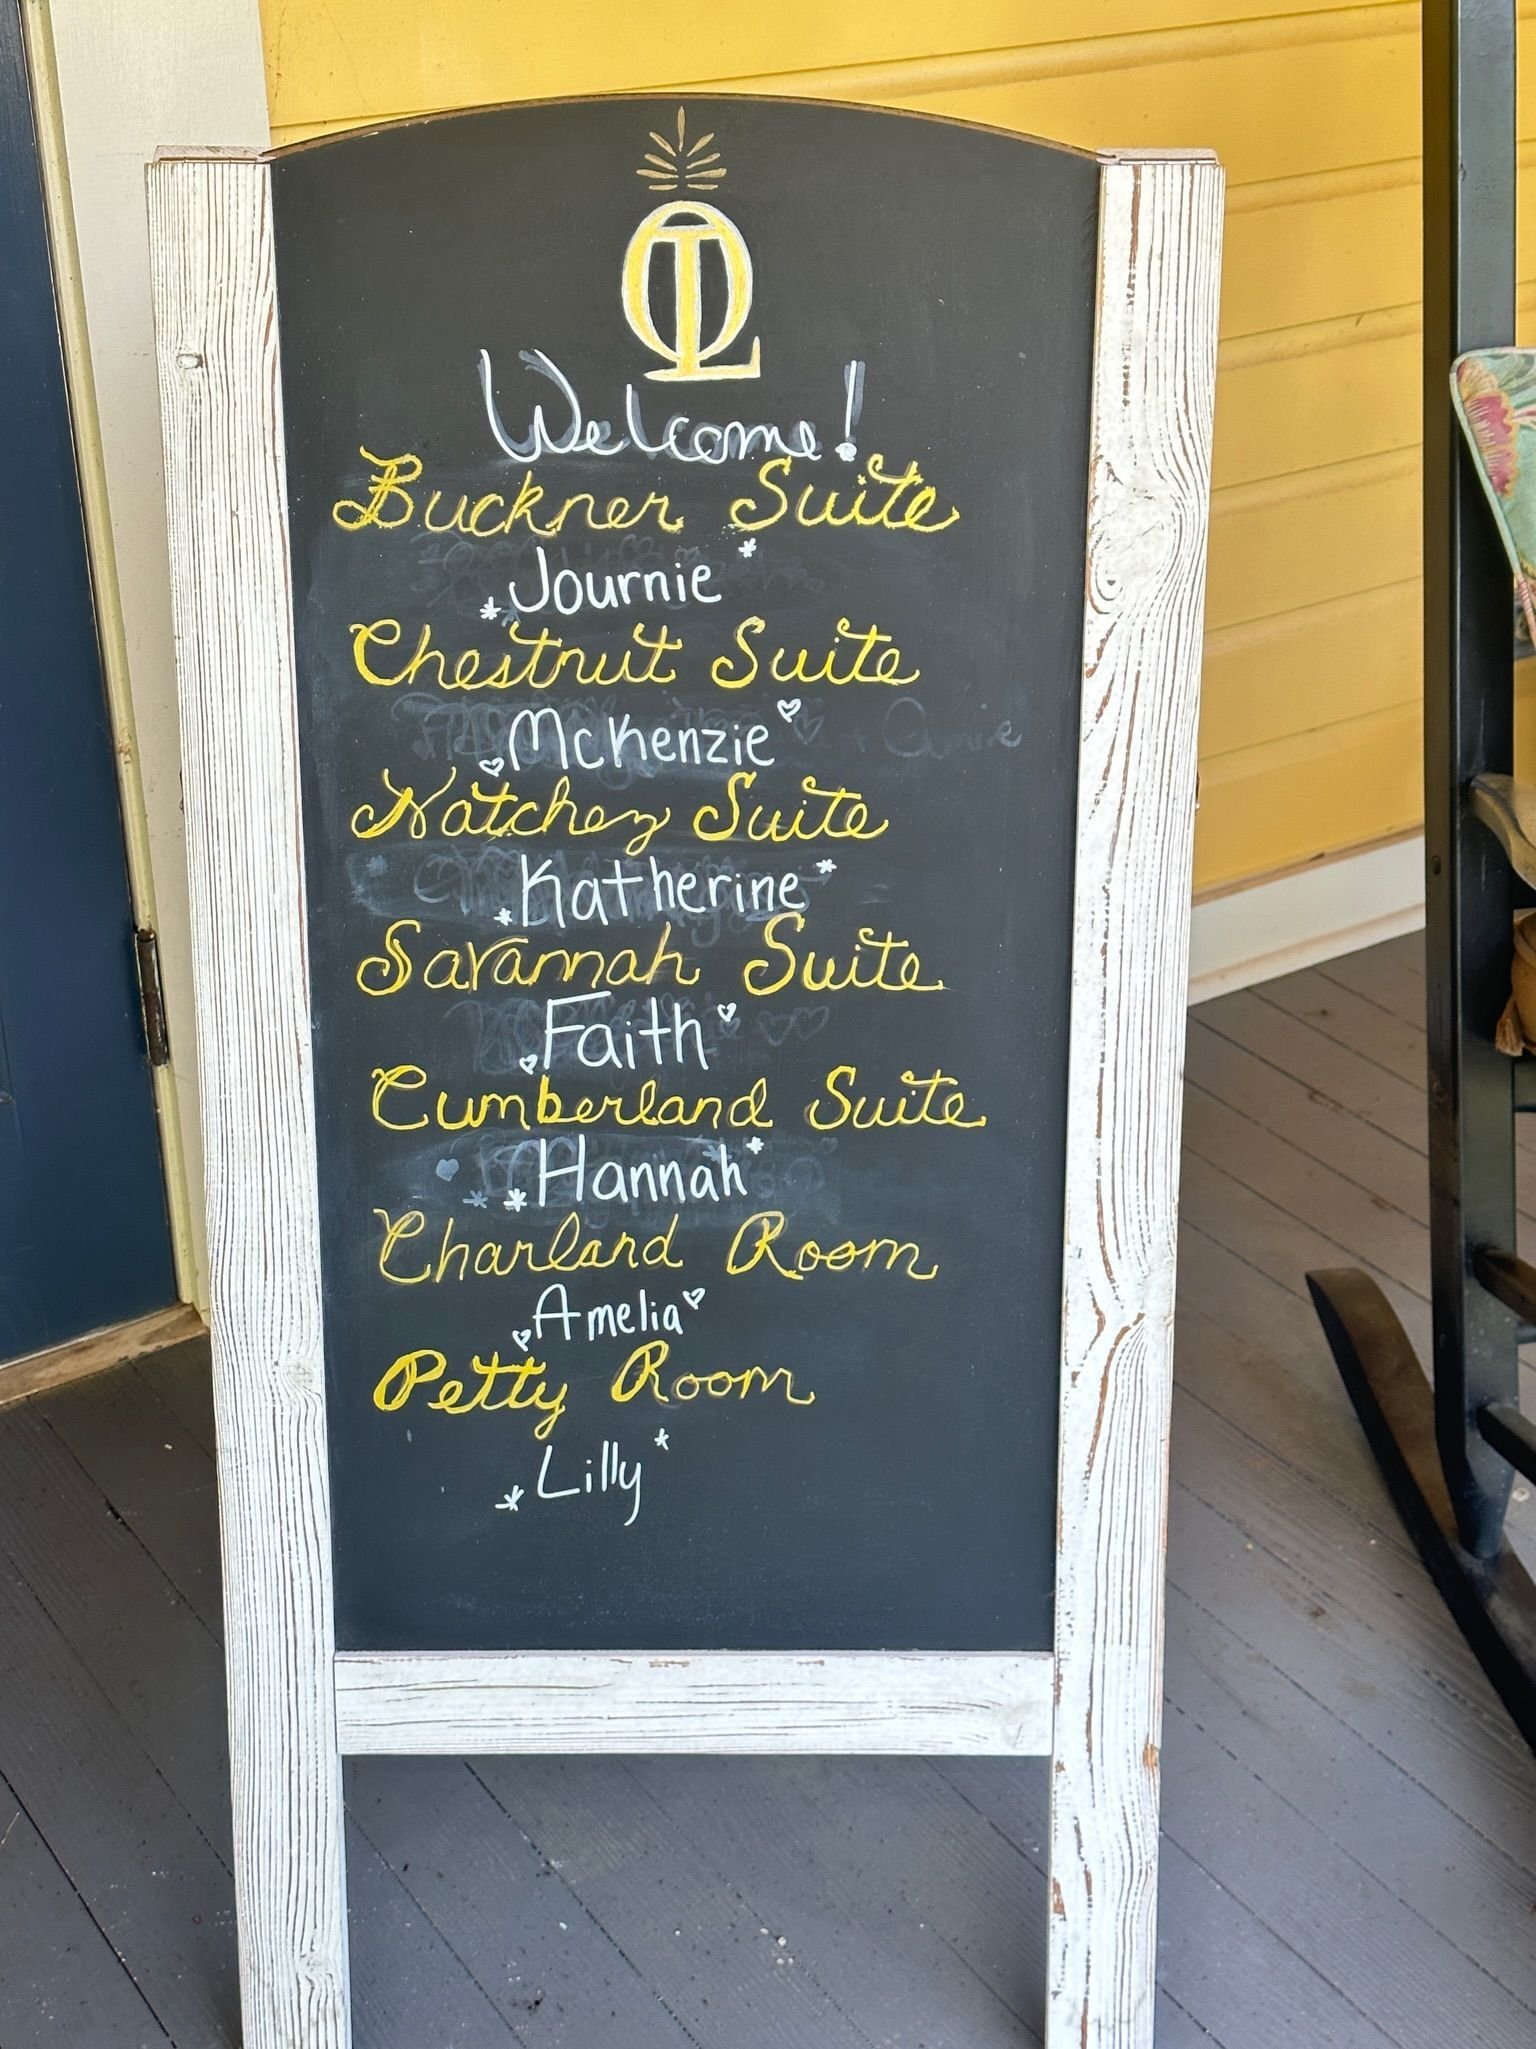 OTL
Welcome!
Buckner Suite
Journie
Chestnut Suite
McKenzie
Natchez Suite
Katherine
Savannah Suite
Faith
Cumberland Suite
Hannah
Charland Room
Amelia
Petty Room
Lilly